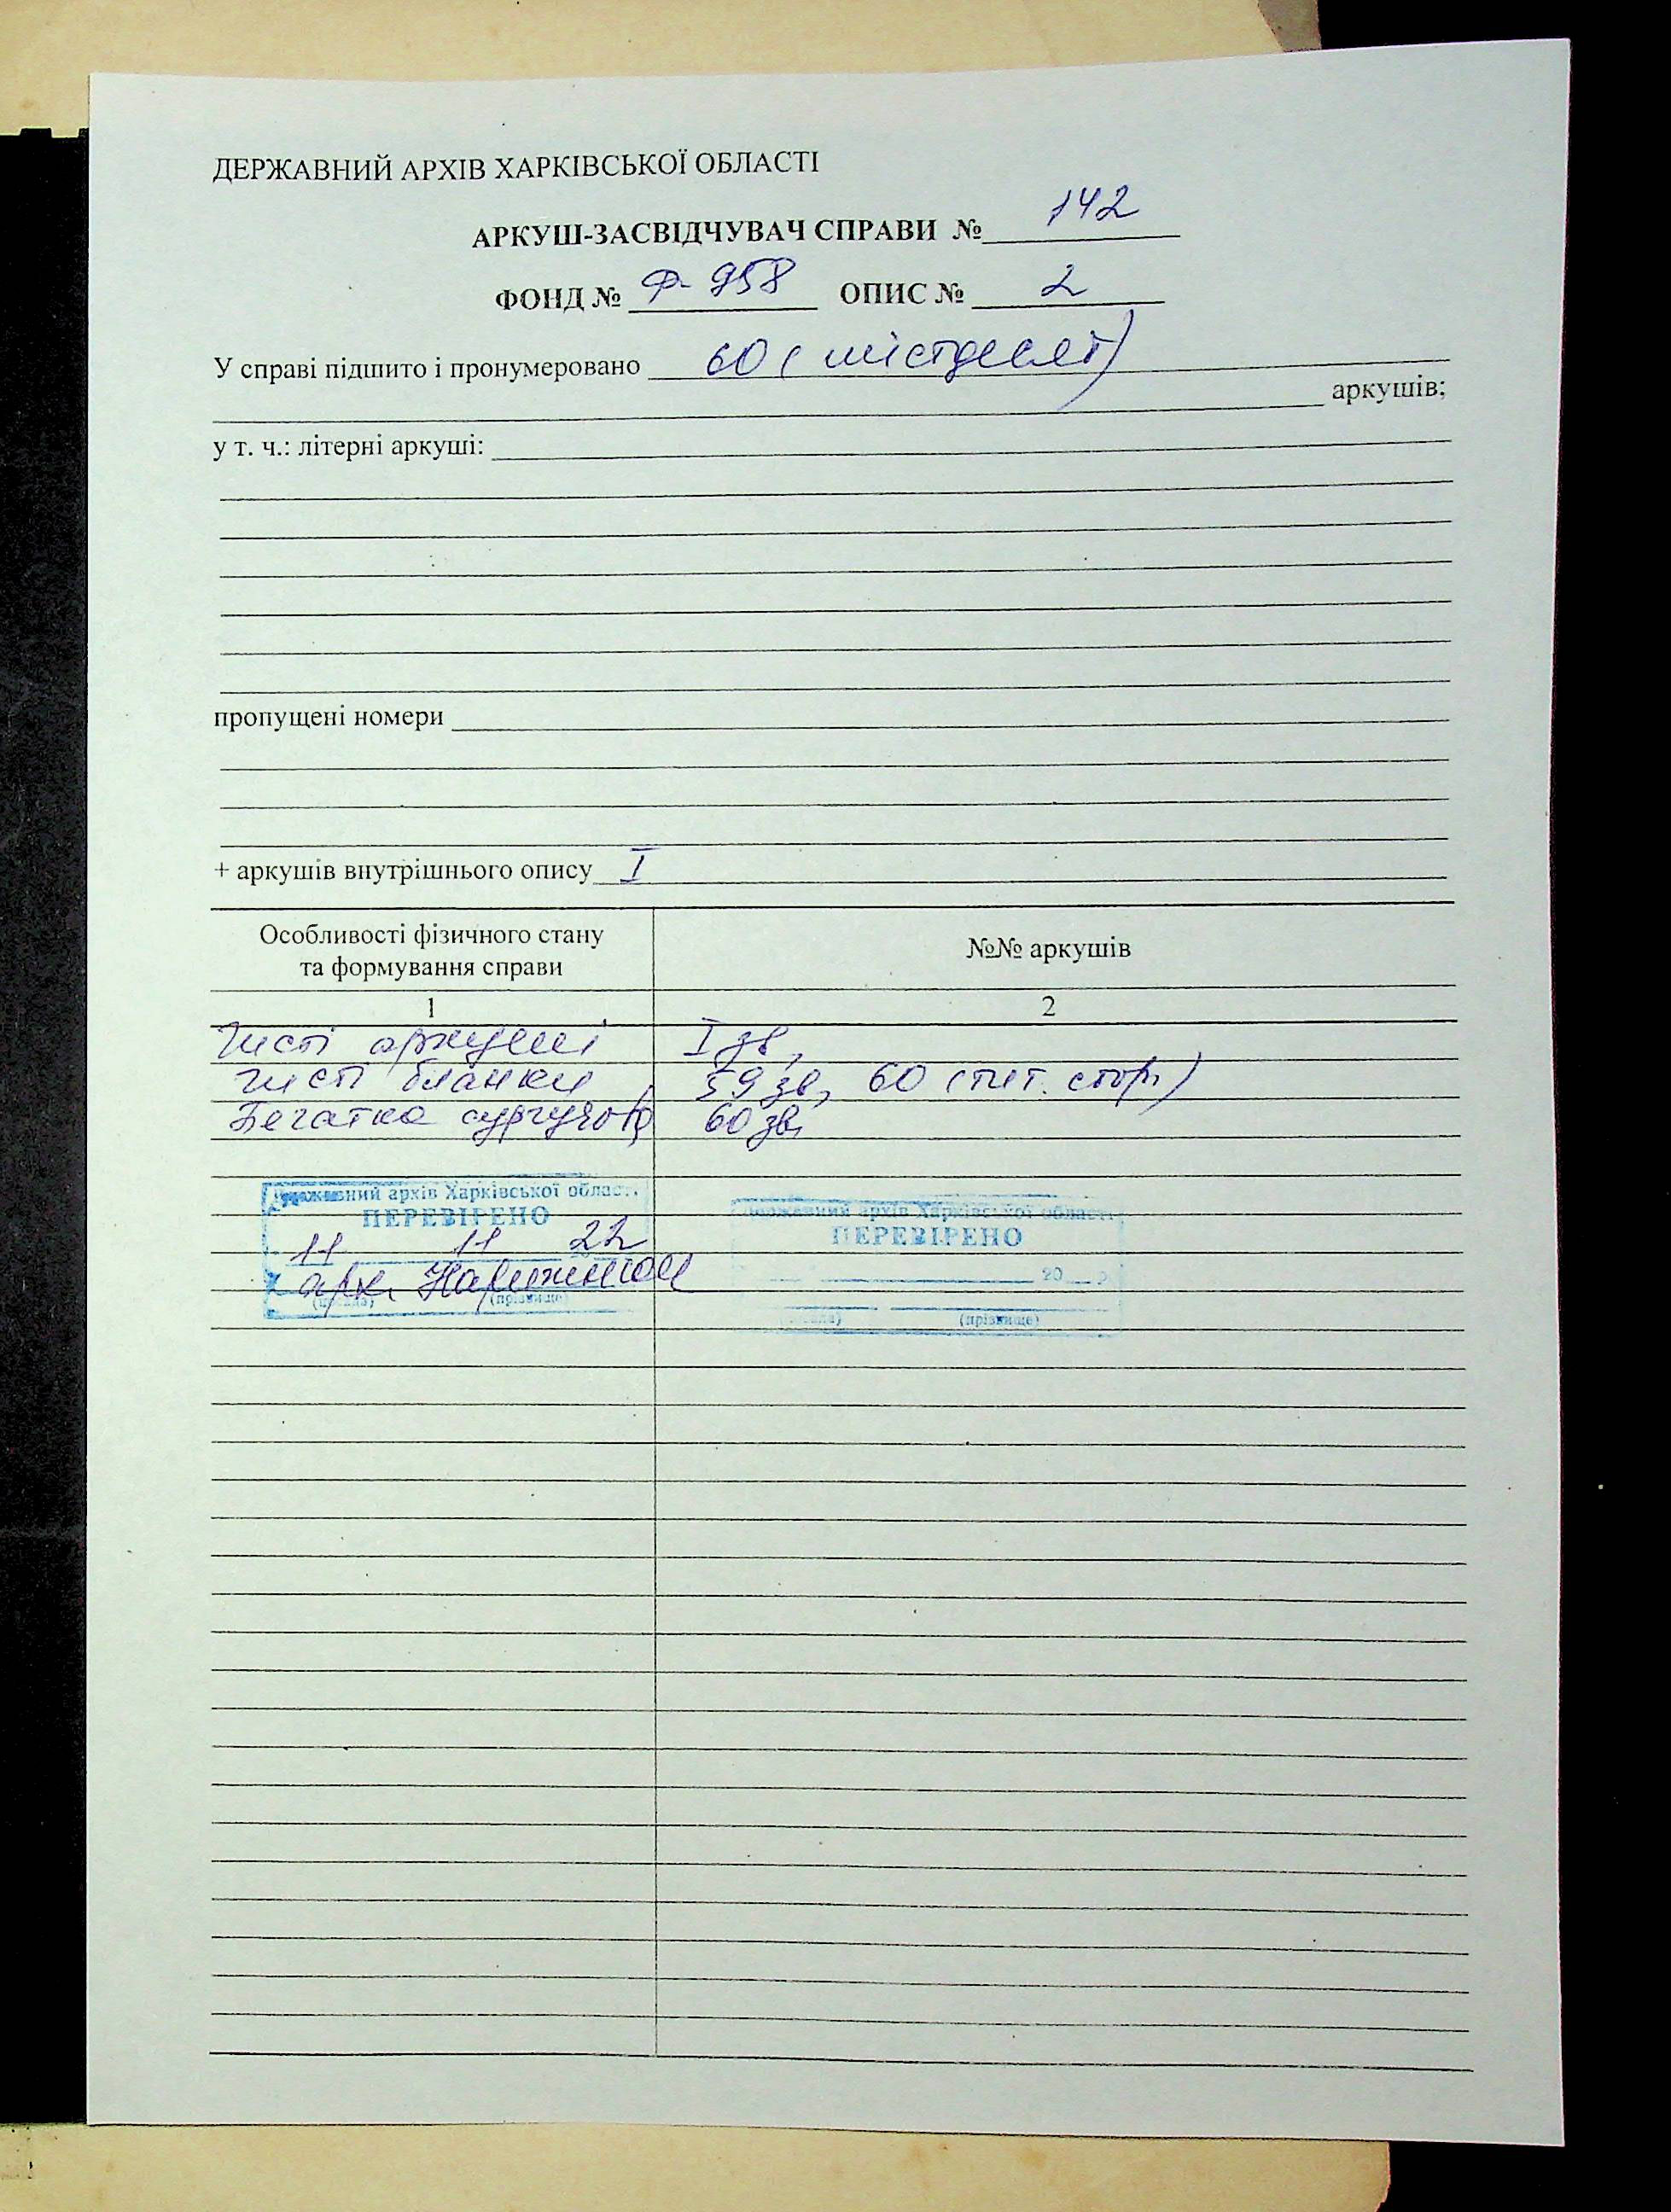 ДЕРЖАВНИЙ АРХІВ ХАРКІВСЬКОЇ ОБЛАСТІ
АРКУШ-ЗАСВІДЧУВАЧ СПРАВИ № 142
ФОНД № Р-958 ОПИС № 2
У справі підшито і пронумеровано 60 (шістдесят)
аркушів;
у т. ч.: літерні аркуші:
пропущені номери
+ аркушів внутрішнього опису I
Особливості фізичного стану та формування справи
№№ аркушів
1 2
Чисті аркуші I зв,
чисті бланки 59 зв, 60 (тит. стор.)
Печатка сургучова 60 зв,
Державний архів Харківської області
ПЕРЕВІРЕНО
11 11 22
арх.
(посада) (прізвище)
Державний архів Харківської області
ПЕРЕВІРЕНО
20 р
(посада) (прізвище)